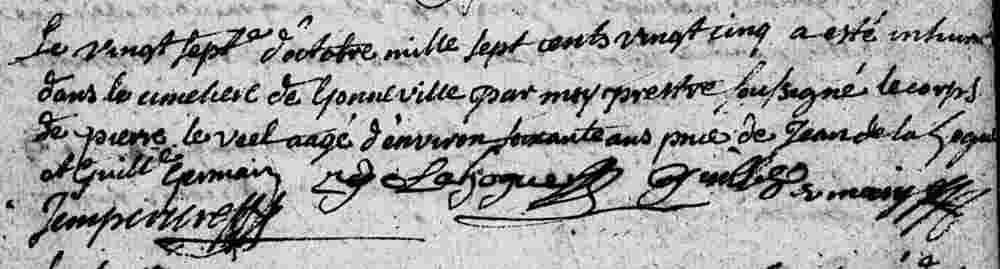 Le vingt sept.e d'octobre mille sept cents vingt cinq a esté inhumé
dans le cimetiere de Gonneville par moy prestre soussigné le corps
de pierre le veel aagé d'environ soixante ans pnce de Jean de la hogue
et Guill.e Germain J de Lahogue Guille Germain